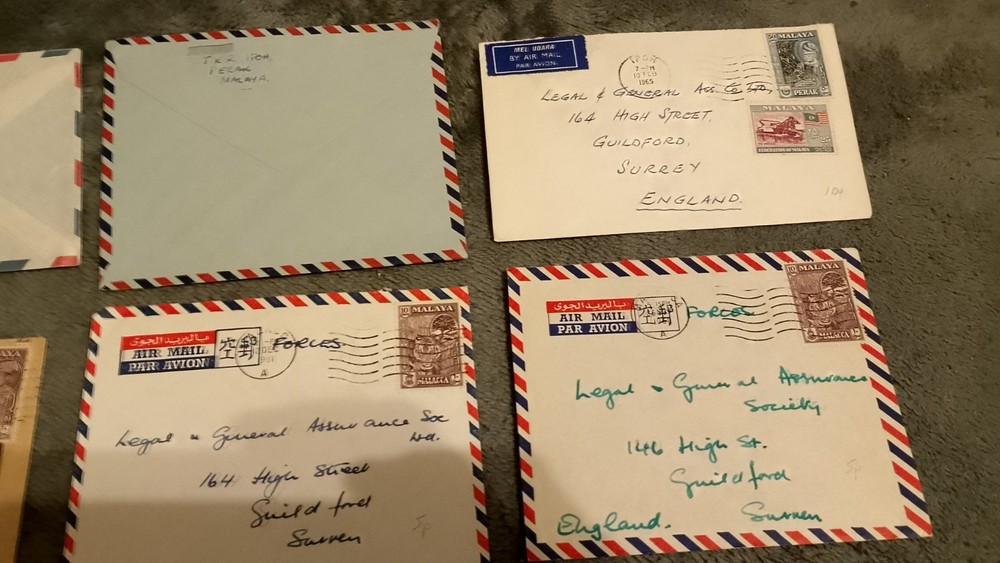 IPOH,
PERAK
MALAYA.
MEL UDARA
BY AIR MAIL
PAR AVION
IPOH
7-PM
10 FEB
1965
MALAYA
PERAK
MALAYA
FEDERATION OF MALAYA
LEGAL & GENERAL ASS. Co LTD,
164 HIGH STREET,
GUILDFORD,
SURREY
ENGLAND.
بالبريد الجوى
AIR MAIL
PAR AVION
空郵
DEC
A
FORCES
10
MALAYA
MALACCA
Legal & General Assurance Soc
Ltd.
164 High Street
Guildford
Surrey
5p
بالبريد الجوى
AIR MAIL
PAR AVION
空郵
A
FORCES
10
MALAYA
MALACCA
Legal & General Assurance
Society
146 High St.
Guildford
England. Surrey
5p